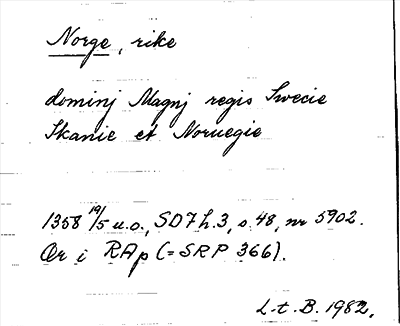 Norge, rike
dominj Magnj regis Swecie
Skanie et Noruegie
1358 19/5 u.o., SD 7 h.3, s. 48, nr 5902.
Or i RAp (= SRP 366).
L.t.B. 1982.